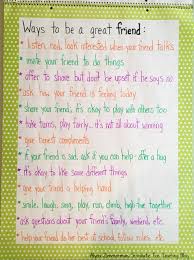 Ways to be a great friend:
* listen, nod, look interested when your friend talks
* invite your friend to do things
* offer to share but don't be upset if he says no
* ask how your friend is feeling today
* share your friend, it's okay to play with others too
* take turns, play fairly... it's not all about winning
* give honest compliments
* if your friend is sad, ask if you can help - offer a hug
* it's okay to like some different things
* give your friend a helping hand
* smile, laugh, sing, play, run, climb, help together
* ask questions about your friend's family, weekend, etc.
* help your friend do her best at school, follow rules, etc.